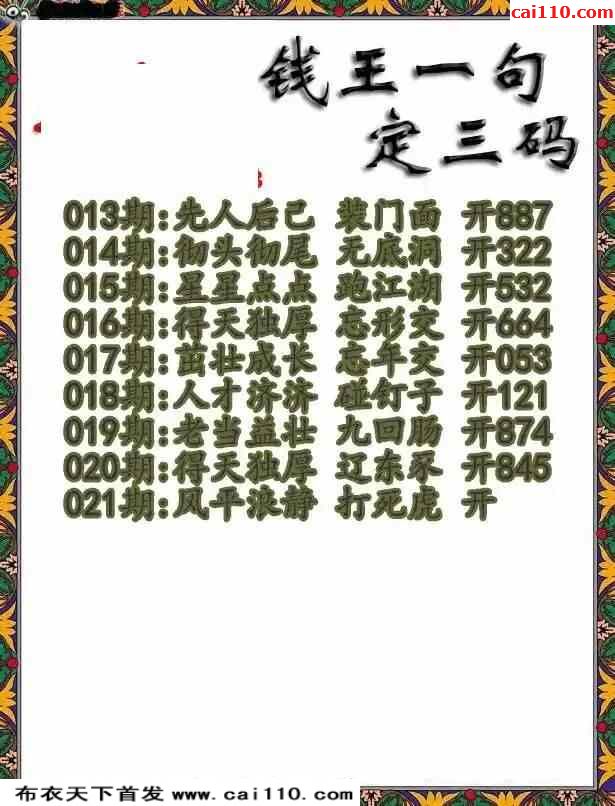 cai110.com
钱王一句
定三码
013期:先人后己 装门面 开887
014期:彻头彻尾 无底洞 开322
015期:星星点点 跑江湖 开532
016期:得天独厚 忘形交 开664
017期:茁壮成长 忘年交 开053
018期:人才济济 碰钉子 开121
019期:老当益壮 九回肠 开874
020期:得天独厚 辽东豕 开845
021期:风平浪静 打死虎 开
布衣天下首发 www.cai110.com